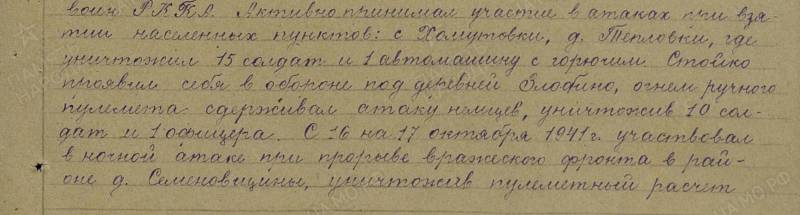 воин РККА. Активно принимал участие в атаках при взя-
тии населенных пунктов: с Хомутовки, д. Тепловки, где
уничтожил 15 солдат и 1 автомашину с горючим. Стойко
проявил себя в обороне под деревней Злобино, огнем ручного
пулемета сдерживал атаку немцев, уничтожив 10 сол-
дат и 1 офицера. С 16 на 17 октября 1941 г. участвовал
в ночной атаке при прорыве вражеского фронта в рай-
оне д. Семеновщины, уничтожив пулеметный расчет